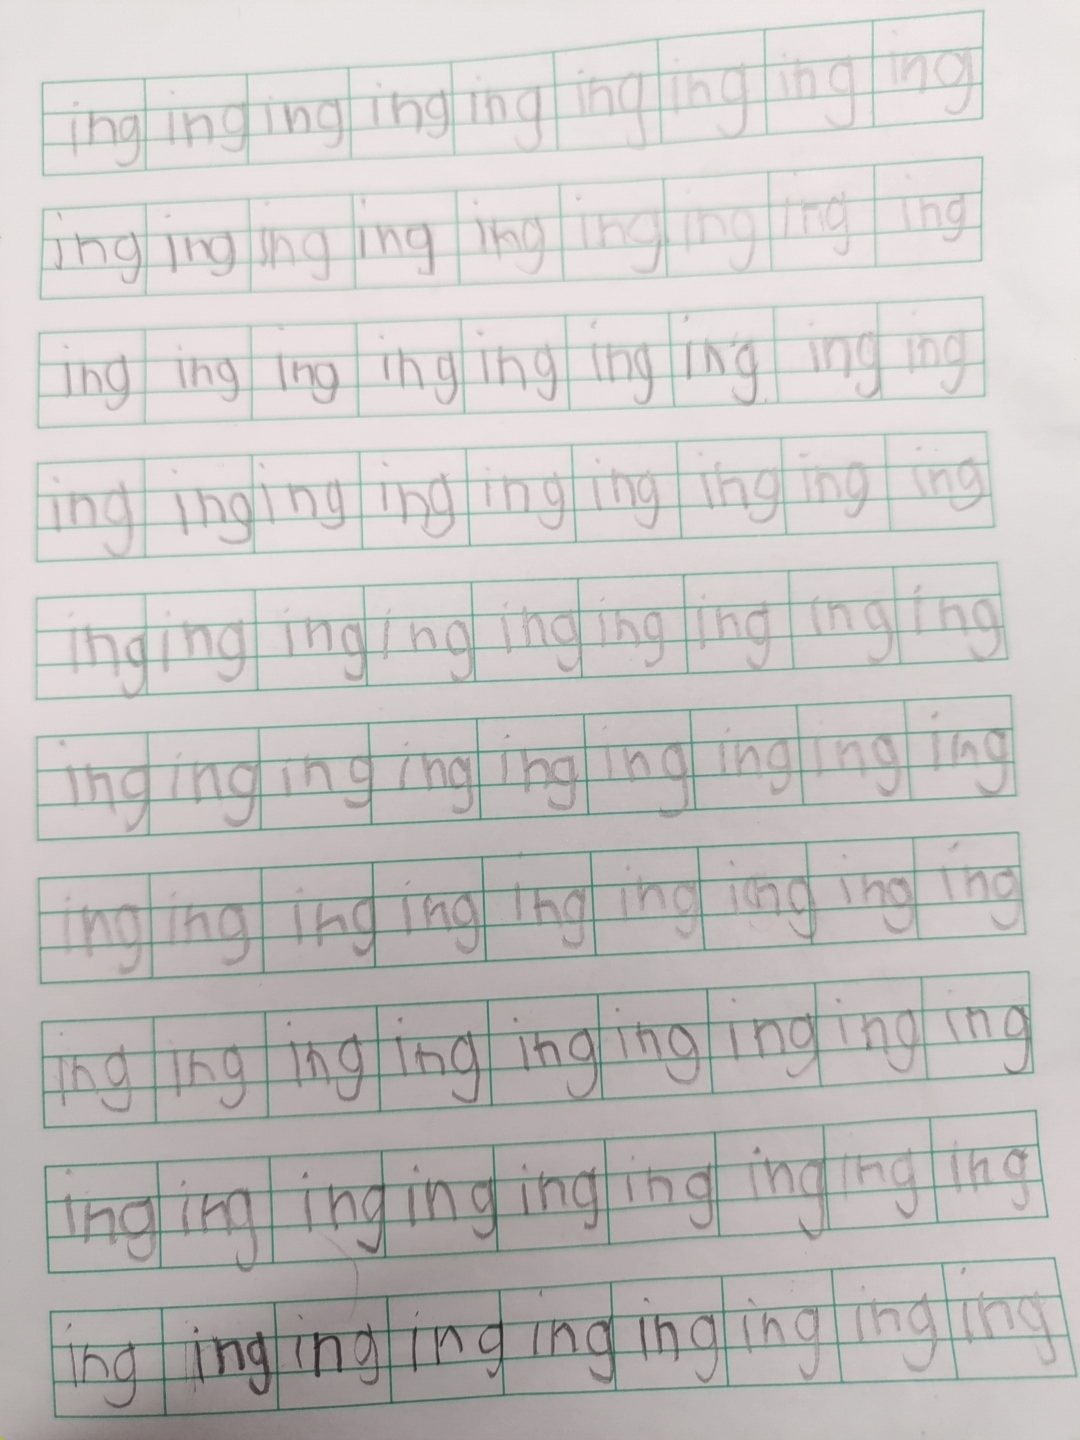 ing ing ing ing ing ing ing ing ing
ing ing ing ing ing ing ing ing ing
ing ing ing ing ing ing ing ing ing
ing ing ing ing ing ing ing ing ing
ing ing ing ing ing ing ing ing ing
ing ing ing ing ing ing ing ing ing
ing ing ing ing ing ing ing ing ing
ing ing ing ing ing ing ing ing ing
ing ing ing ing ing ing ing ing ing
ing ing ing ing ing ing ing ing ing